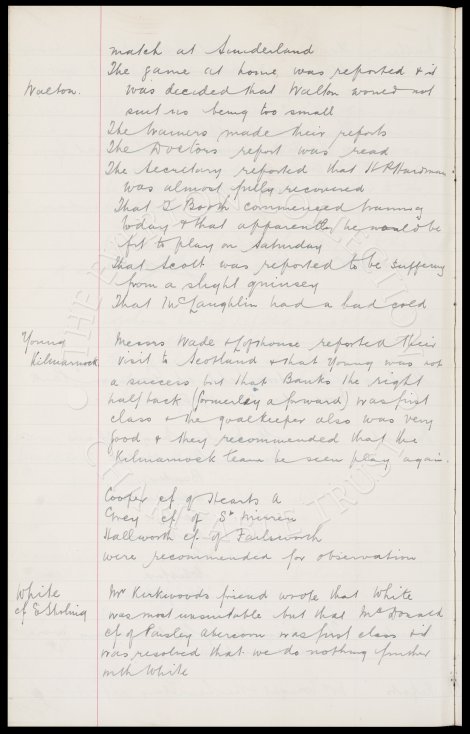 match at Sunderland
The game at home was reported & it
Walton.
was decided that Walton would not
suit us being too small
The trainers made their reports
The Doctors report was read
The Secretary reported that H P Hardman
was almost fully recovered
That T Booth commenced training
today & that apparently he would be
fit to play on Saturday
That Scott was reported to be suffering
from a slight quinsey
That McLaughlin had a bad cold
Young
Kilmarnock
Messrs Wade & Lofthouse reported their
visit to Scotland & that Young was not
a success but that Banks the right
half back (formerley a forward) was first
class & the goalkeeper also was very
good & they recommended that the
Kilmarnock team be seen play again.
Cooper cf of Hearts A
Grey cf of St Mirren
Hallworth cf of Failsworth
were recommended for observation
White
cf E Stirling
Mr Kirkwoods friend wrote that White
was most unsuitable but that McDonald
cf of Paisley Abercorn was first class & it
was resolved that we do nothing further
with White